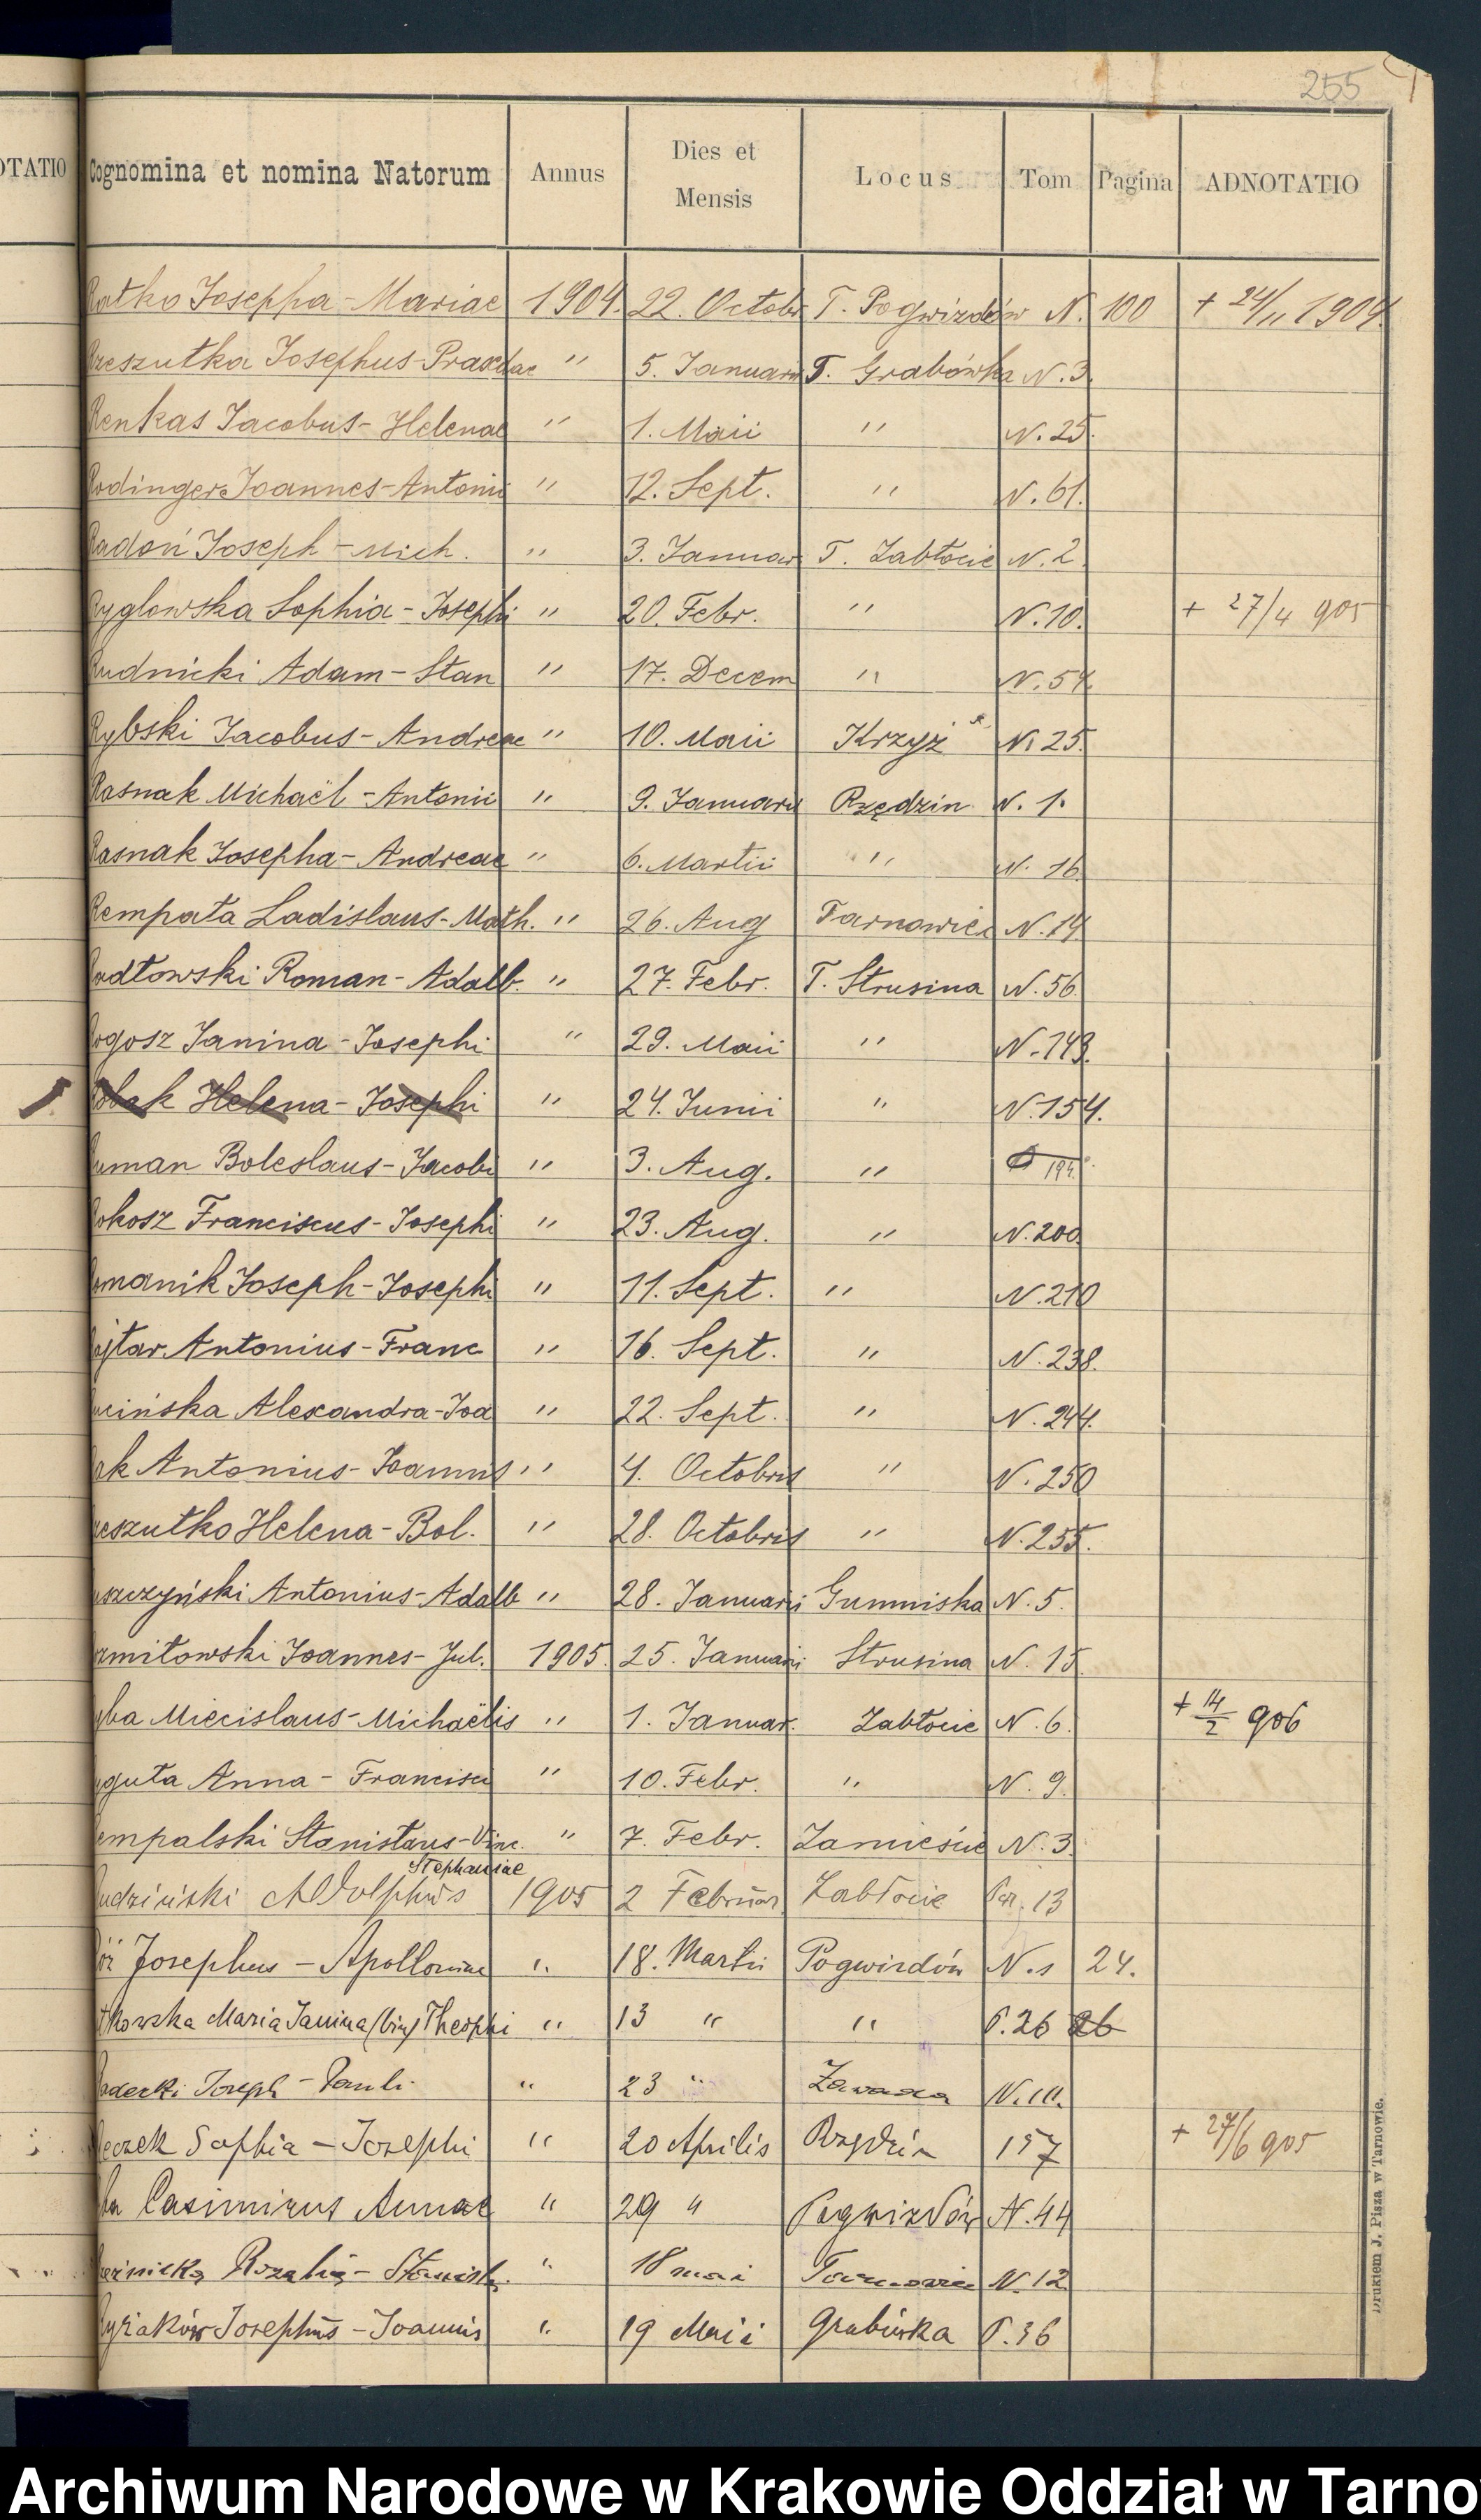 255
OTATIO Cognomina et nomina Natorum Annus Dies et Mensis Locus Tom Pagina ADNOTATIO
Ratko Josephа - Mariae 1904. 22. Octobr T. Pogwizdów N. 100 + 24/11 1904.
Rzeszutka Josephus - Praxedae " 5. Januarii T. Grabówka N. 3.
Renkas Jacobus - Helenae " 1. Maii " N. 25.
Rodinger Joannes - Antonii " 12. Sept. " N. 61.
Radoń Joseph - Mich. " 3. Januar T. Zabłocie N. 2.
Ryglowska Sophia - Josephi " 20. Febr. " N. 10. + 27/4 905
Rudnicki Adam - Stan " 17. Decem " N. 54.
Rybski Jacobus - Andreae " 10. Maii Krzyż N. 25.
Rasnak Michaël - Antonii " 9. Januarii Rzędzin N. 1.
Rasnak Josepha - Andreae " 6. Martii " N. 16
Rempata Ladislaus - Math. " 26. Aug Tarnowiec N. 14.
Rudtowski Roman - Adalb. " 27. Febr. T. Strusina N. 56.
Rogosz Janina - Josephi " 29. Maii " N. 143.
Robak Helena - Josephi " 24. Junii " N. 154.
Ruman Boleslaus - Jacobi " 3. Aug. " 194.
Rokosz Franciscus - Josephi " 23. Aug. " N. 200.
Romanik Joseph - Josephi " 11. Sept. " N. 210
Rojtar Antonius - Franc " 16. Sept. " N. 238.
ucińska Alexandra - Joa " 22. Sept. " N. 244.
ak Antonius - Joannis " 4. Octobris " N. 250
Rzeszutko Helena - Bol. " 28. Octobris " N. 255.
uszczyński Antonius - Adalb " 28. Januarii Gumniska N. 5.
ozmitowski Joannes - Jul. 1905. 25. Januarii Strusina N. 15.
Ryba Miecislaus - Michaëlis " 1. Januar. Zabłocie N. 6. + 14/2 906
yguta Anna - Francisci " 10. Febr. " N. 9.
Rempalski Stanisłaus - Vinc. " 7. Febr. Zamieście N. 3.
Stephaniae
Rudziński Adolphus 1905 2 Februar. Zabłocie Pg. 13
Róż Josephus - Apolloniae " 18. Martii Pogwizdów N. 1 24.
tkowska Maria Janina (bin) Theophi " 13 " " P. 26 26
Radecki Joseph - Pauli " 23 " Zawada N. 10.
eczek Sophia - Josephi " 20 Aprilis Rzędzin 157 + 27/6 905
Casimirus Annae " 29 " Pogwizdów N. 44
Rzeźnicka Rozalia - Stanisł. " 18 mai Tarnowiec N. 12
Ryżaków Josephus - Joannis " 19 Maii Grabówka P. 36
Drukiem J. Pisza w Tarnowie.
Archiwum Narodowe w Krakowie Oddział w Tarno